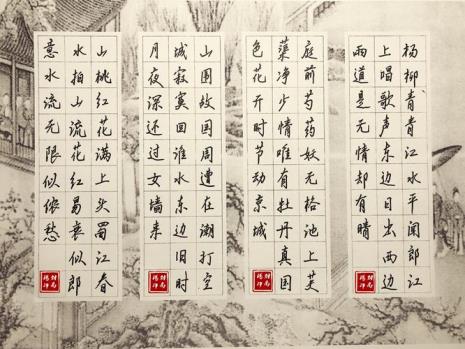 杨柳青青江水平闻郎江
上唱歌声东边日出西边
雨道是无情却有晴
庭前芍药妖无格池上芙
蕖净少情唯有牡丹真国
色花开时节动京城
山围故国周遭在潮打空
城寂寞回淮水东边旧时
月夜深还过女墙来
山桃红花满上头蜀江春
水拍山流花红易衰似郎
意水流无限似侬愁